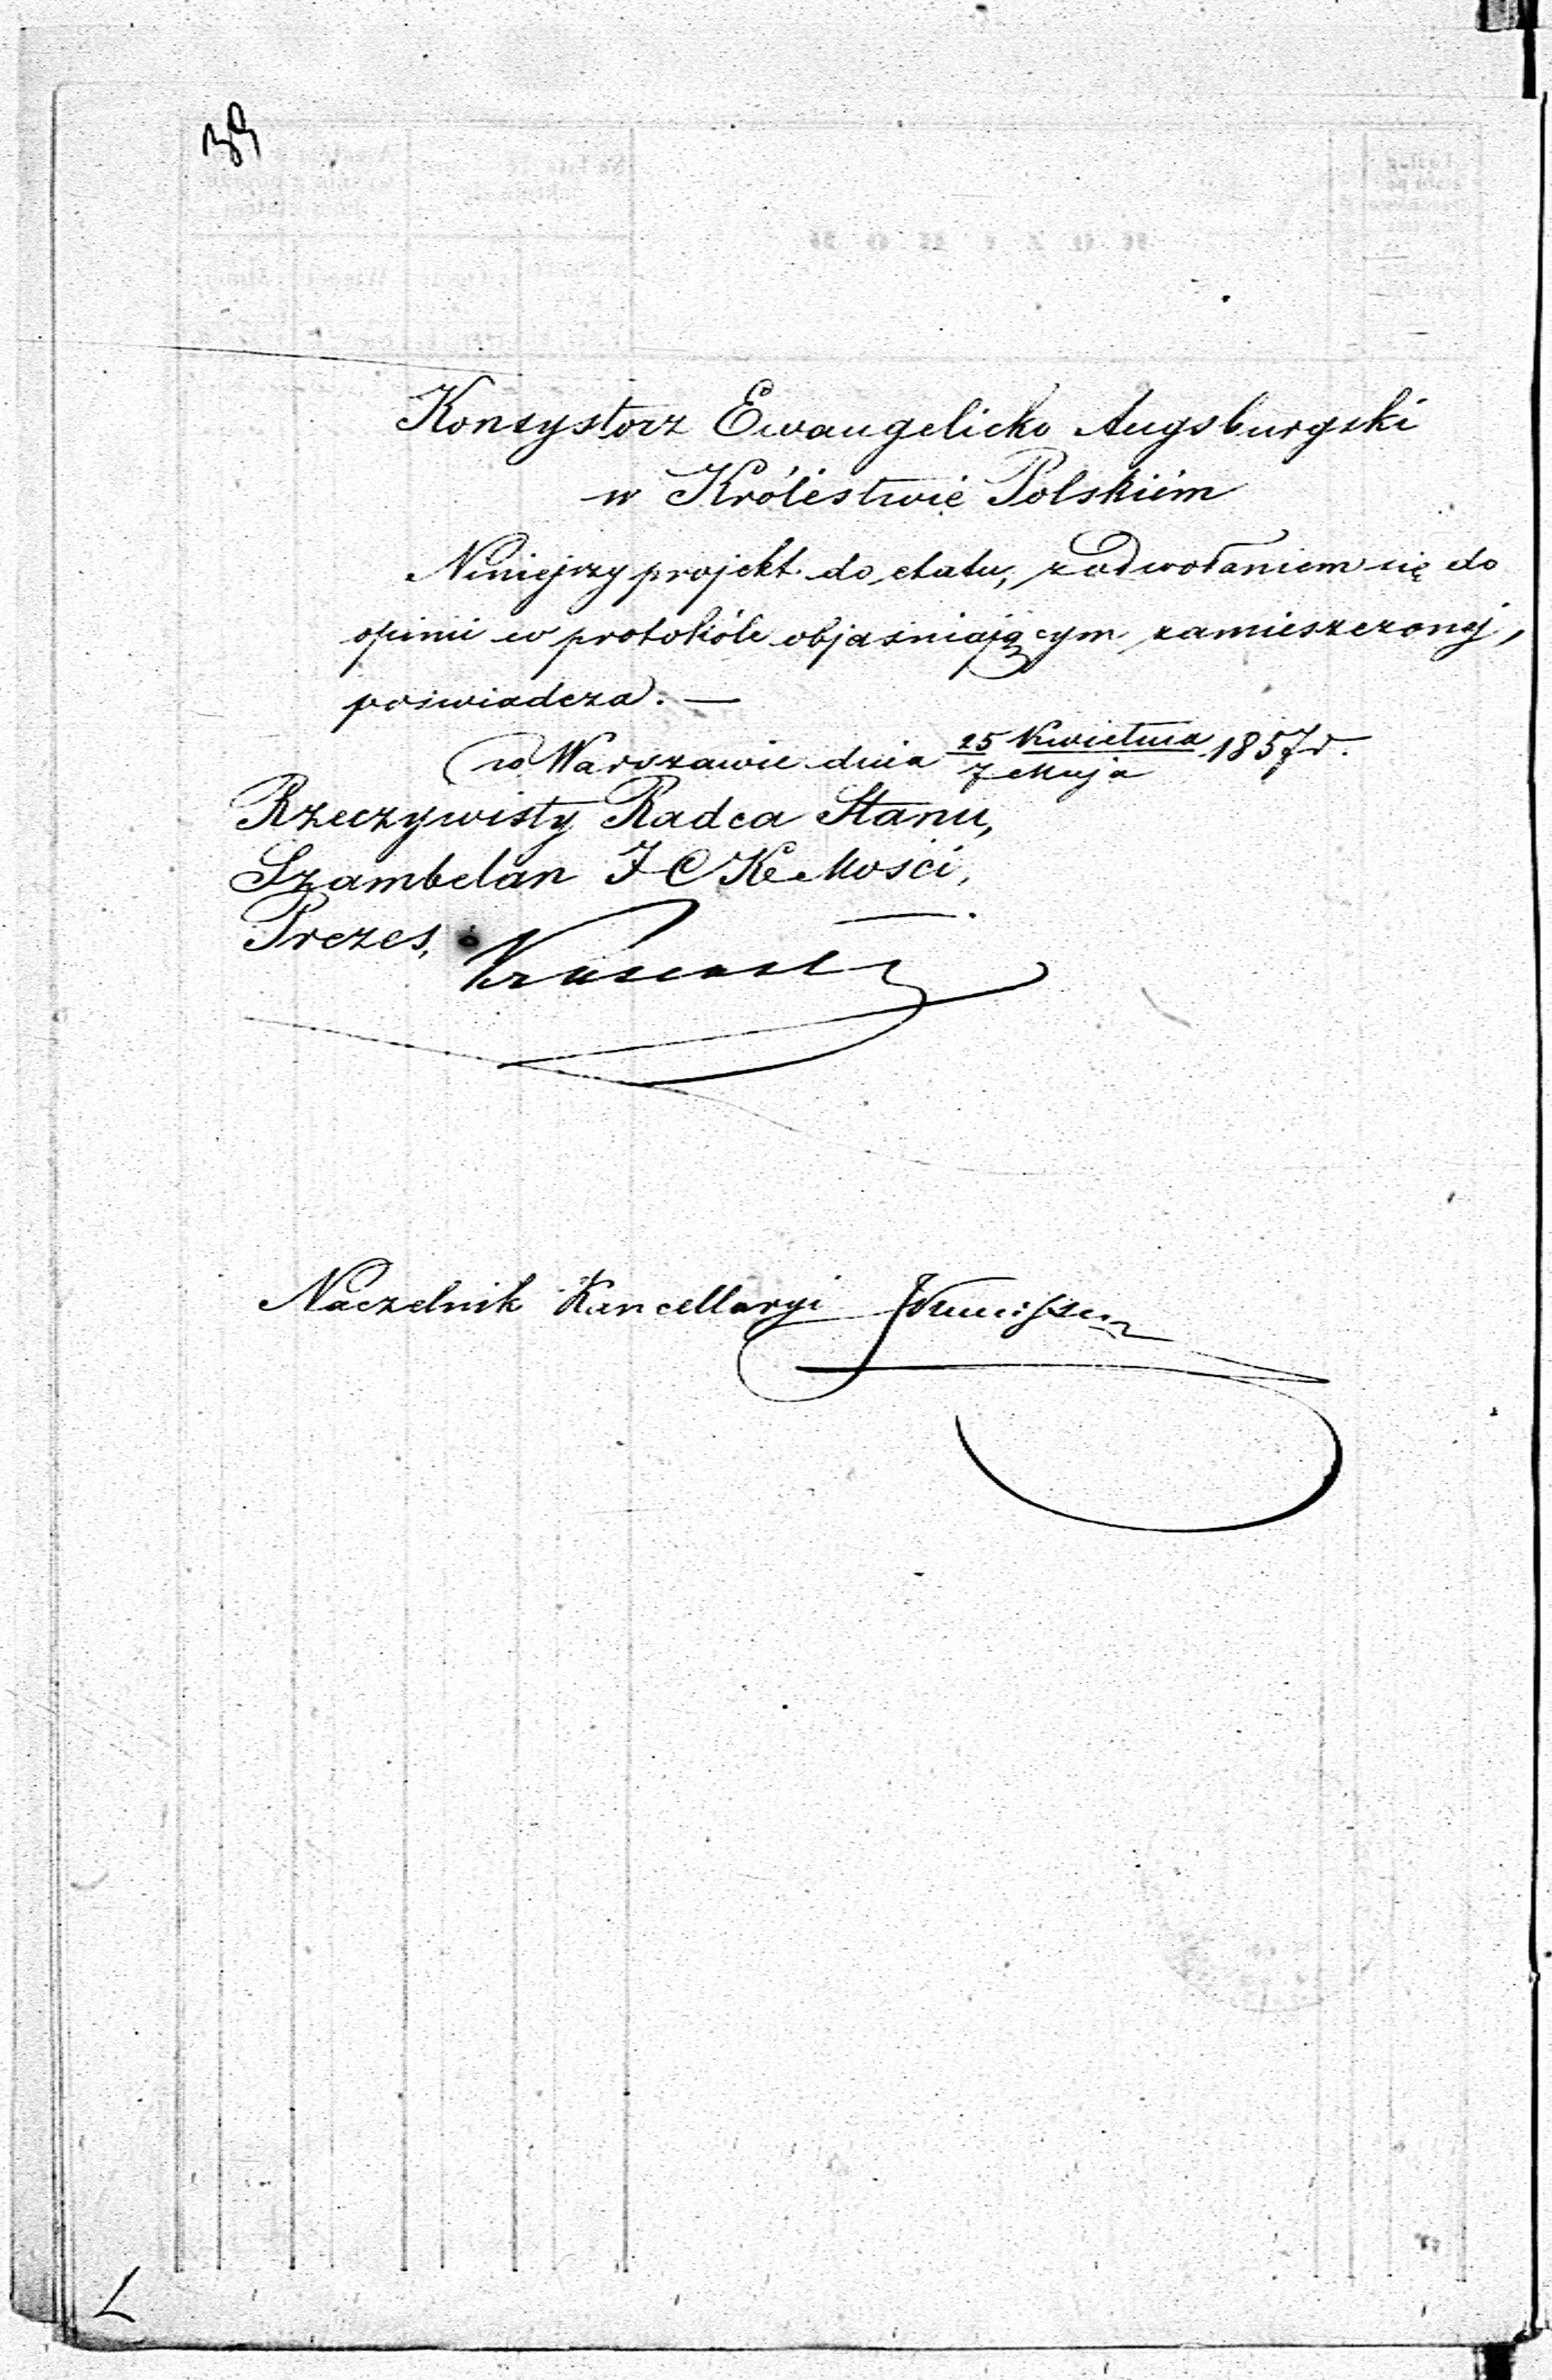 39
Konsystorz Ewangelicko Augsburgski
w Królestwie Polskiém
Niniejszy projekt do etatu, z odwołaniem się do
opinii w protokóle objaśniającym zamieszczonej,
poświadcza. —
w Warszawie dnia 25 Kwietnia / 7 Maja 1857 r.
Rzeczywisty Radca Stanu,
Szambelan J C K Mości,
Prezes,
Naczelnik Kancellaryi